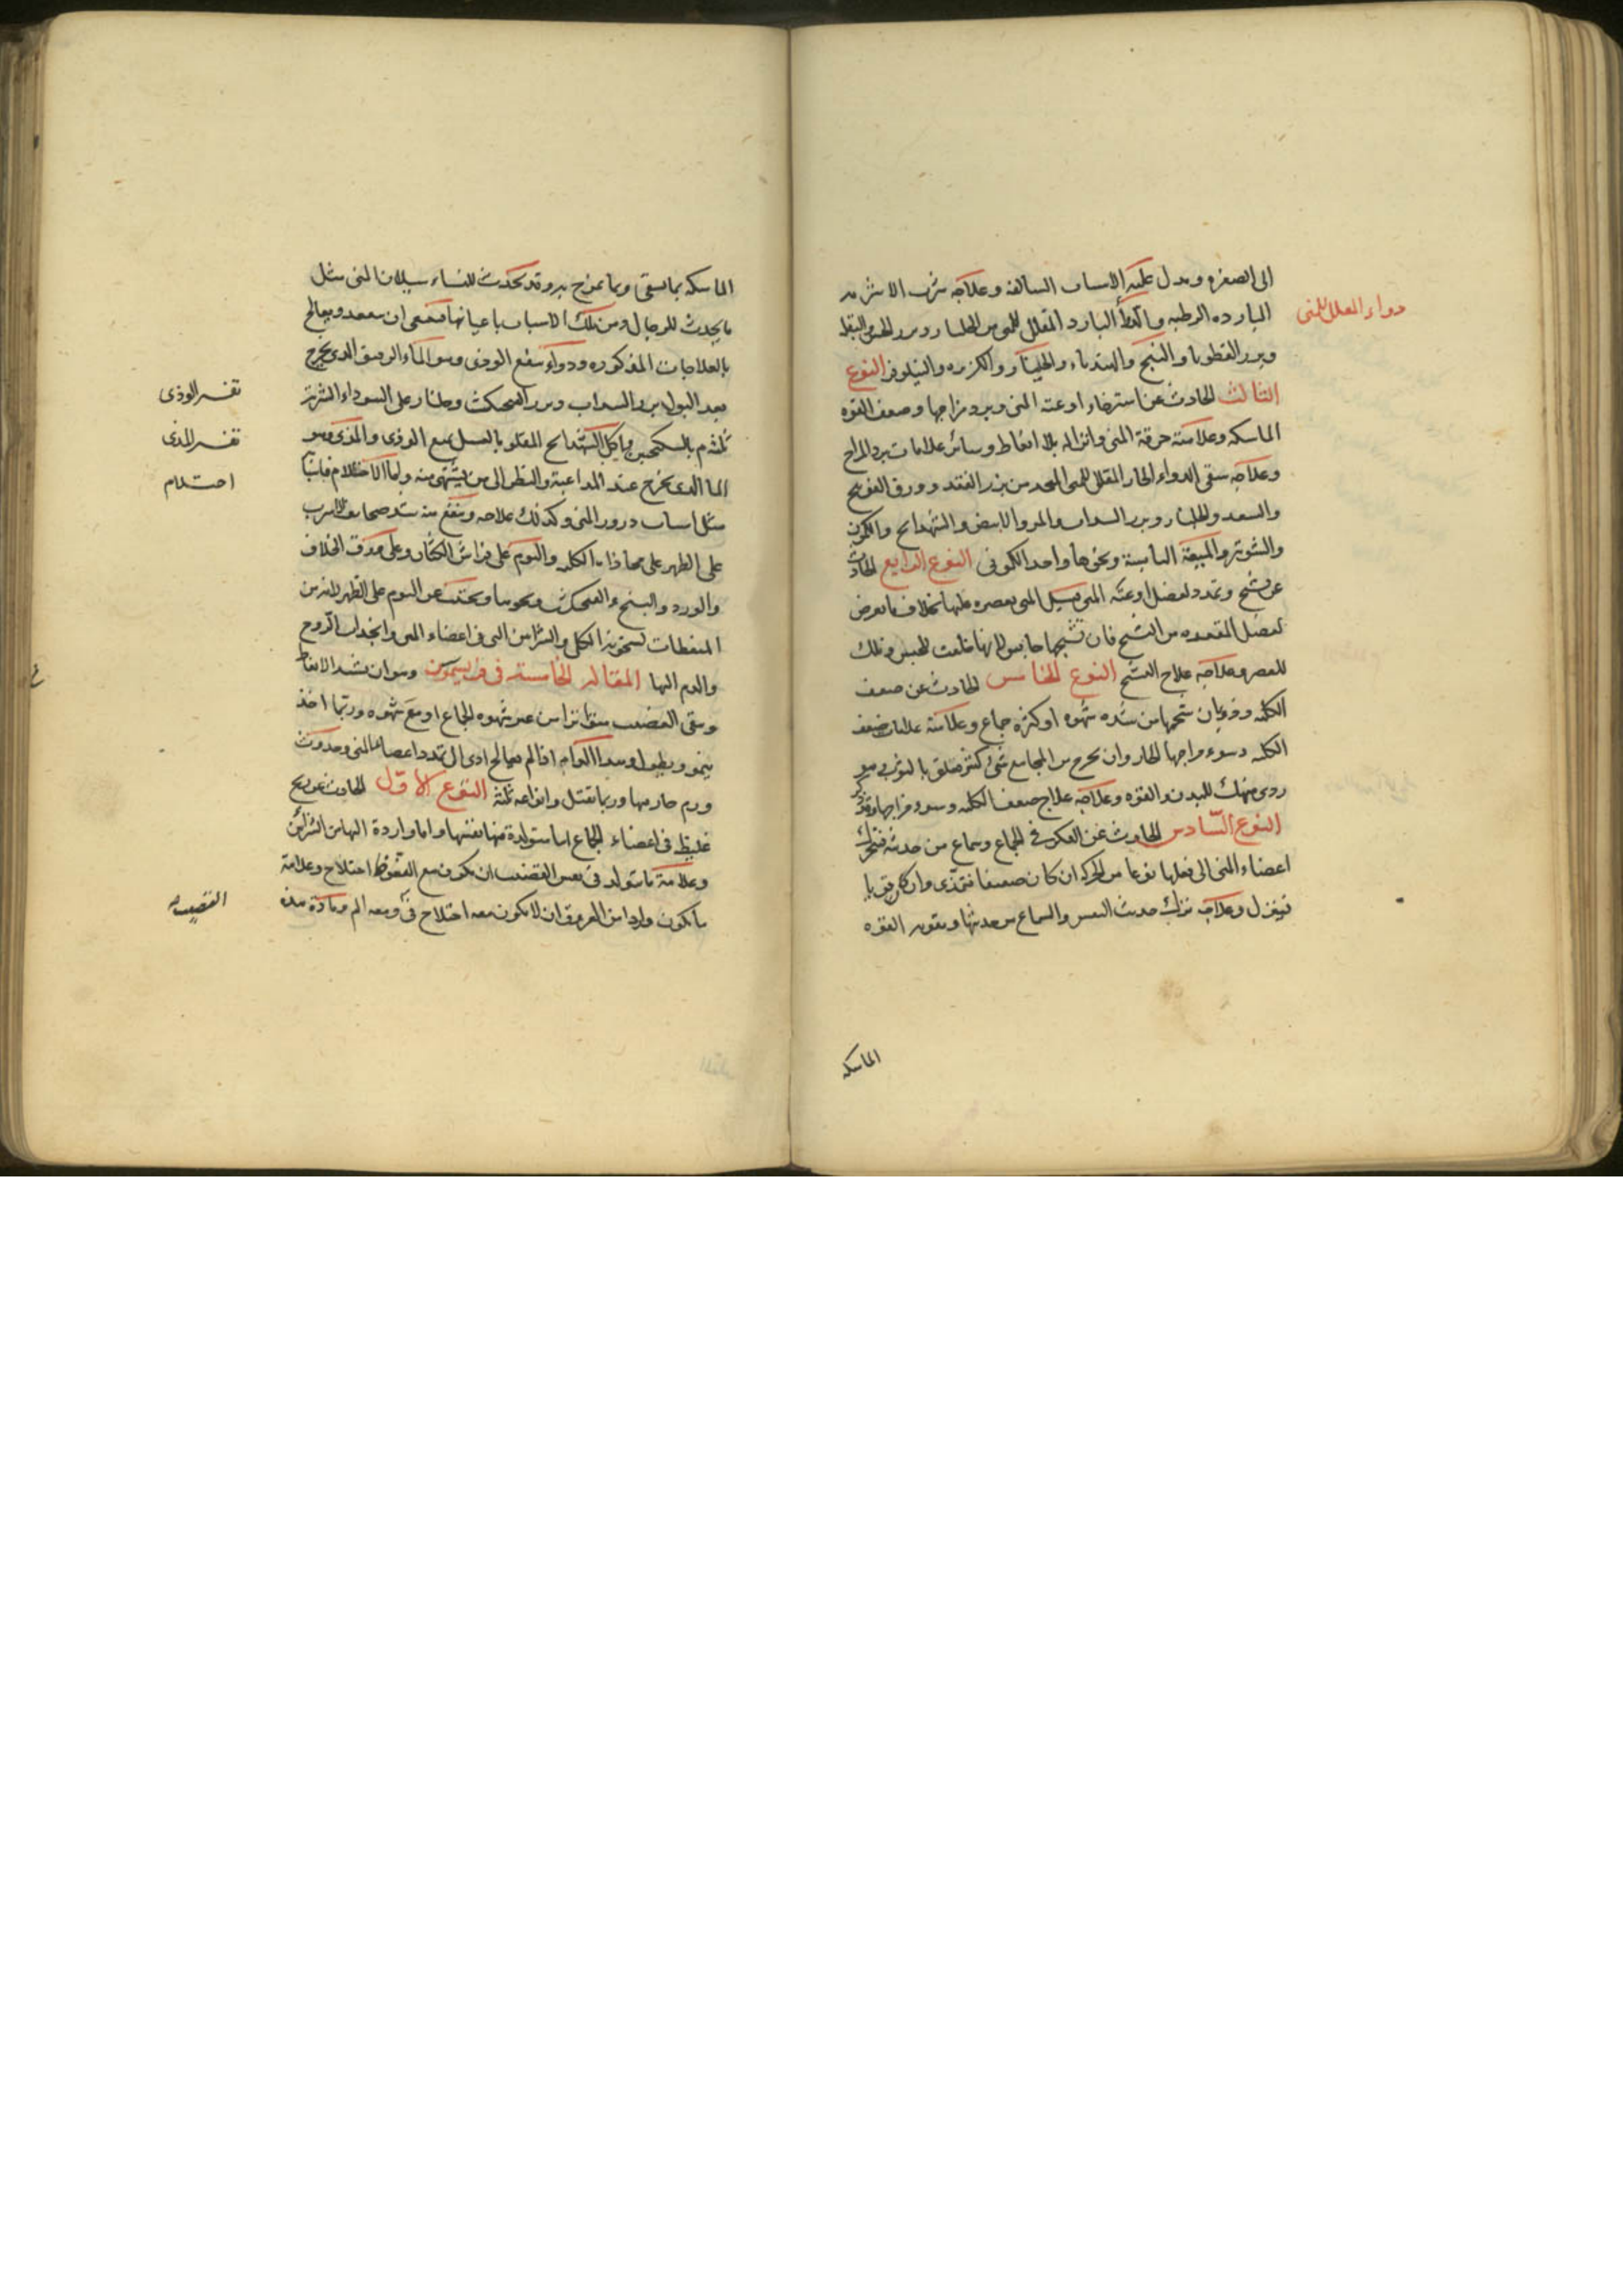 الى الصفره ويدل عليه الاسباب السالفة وعلاجه شرب الاشربه
البارده الرطبه والدواء البارد المقلل للمنى من الجلنار وبزر الخس والبقله
وبزر القطونا والبنج والهندباء والجلنار والكزبره والنيلوفر النوع
الثالث الحادث عن استرخاء اوعية المنى وبرد مزاجها وضعف القوه
الماسكه وعلامته رقة المنى وانزاله بلا انعاظ وسائر علامات برد المزاج
وعلاجه سقى الدواء الحار المقلل للمنى المتخذ من بزر الفقد وورق الفوتنج
والسعد والجلنار وبزر السداب والمرو الابيض والشهدانج والكمون
والشونيز والميعة اليابسة ونحوها واحد الكمونى النوع الرابع الحادث
عن تشنج وتمدد لعضل اوعية المنى فيسيل المنى بعصره عليها بخلاف ما يعرض
لعضل المقعده من التشنج فان تشنجها حابس لانها خلقت للحبس وتلك
للعصر وعلاجه علاج التشنج النوع الخامس الحادث عن ضعف
الكليه وذوبان شحمها من شده شهوه او كثرة جماع وعلامته علامات ضعف
الكليه وسوء مزاجها الحار وان يخرج من المجامع شئ كثير متعلق بالثوب وهو
ردى منهك للبدن والقوه وعلاجه علاج ضعف الكليه وسوء مزاجها وقد ذكر
النوع السادس الحادث عن الفكر فى الجماع وسماع من حديثه فتتحرك
اعضاء المنى الى فعلها نوعا من الحركه ان كان ضعيفا فتمذى وان كان قويا
فينزل وعلاجه ترك حديث النفس والسماع من حديثها وتقويه القوه
دواء المقلل للمنى
الماسكه
الماسكه بما يسقى وبما يمرخ به وقد يحدث للنساء سيلان المنى مثل
ما يحدث للرجال ومن تلك الاسباب باعيانها فينبغى ان يتفقد ويعالج
بالعلاجات المذكوره ودواء ينفع الوذى وهو الماء الرقيق الذى يخرج
بعد البول بزر السداب وبزر الفنجنكشت وجلنار على السواء الشربة
ثلثه م بالسكنجبين واكل الشهدانج المقلو بالعسل ينفع الوذى والمذى وهو
الما الذى يخرج عند المداعبة والنظر الى من يشتهى منه واما الاحتلام فاسبابه
مثل اسباب درور المنى وكذلك علاجه وينفع منه شد صحائف الاسرب
على الظهر على محاذاة الكليه والنوم على فراش الكتان وعلى ورق الخلاف
والورد والبنفسج والفنجنكشت ونحوها ويجتنب عن النوم على الظهر لانه من
المنعظات لسخونة الكلى والشرائين التى فى اعضاء المنى وانجذاب الروح
والدم اليها المقاله الخامسة فى فريسيموس وهو ان يشتد الانعاظ
ويبقى القضيب منتشرا من غير شهوه الجماع او مع شهوه وربما اخذ
ينمو ويطول وهذا الداء اذا لم يعالج ادى الى تمدد اعضاء المنى وحدوث
ورم حار بها وربما يقتل وانواعه ثلثة النوع الاول الحادث عن ريح
غليظ فى اعضاء الجماع اما متولدة فيها نفسها واما واردة اليها من الشرائين
وعلامة ما يتولد فى نفس القضيب ان يكون مع النعوظ اختلاج وعلامة
ما يكون واردا من العروق ان لا يكون معه اختلاج فى ومعه الم ومادة هذه
تفسير الوذى
تفسير المذى
احتلام
القضيب